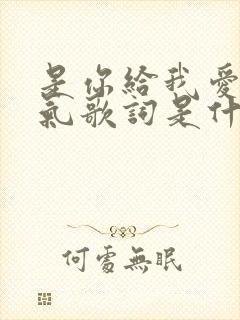 是你給我愛
氣歌詞是什
何處無眠